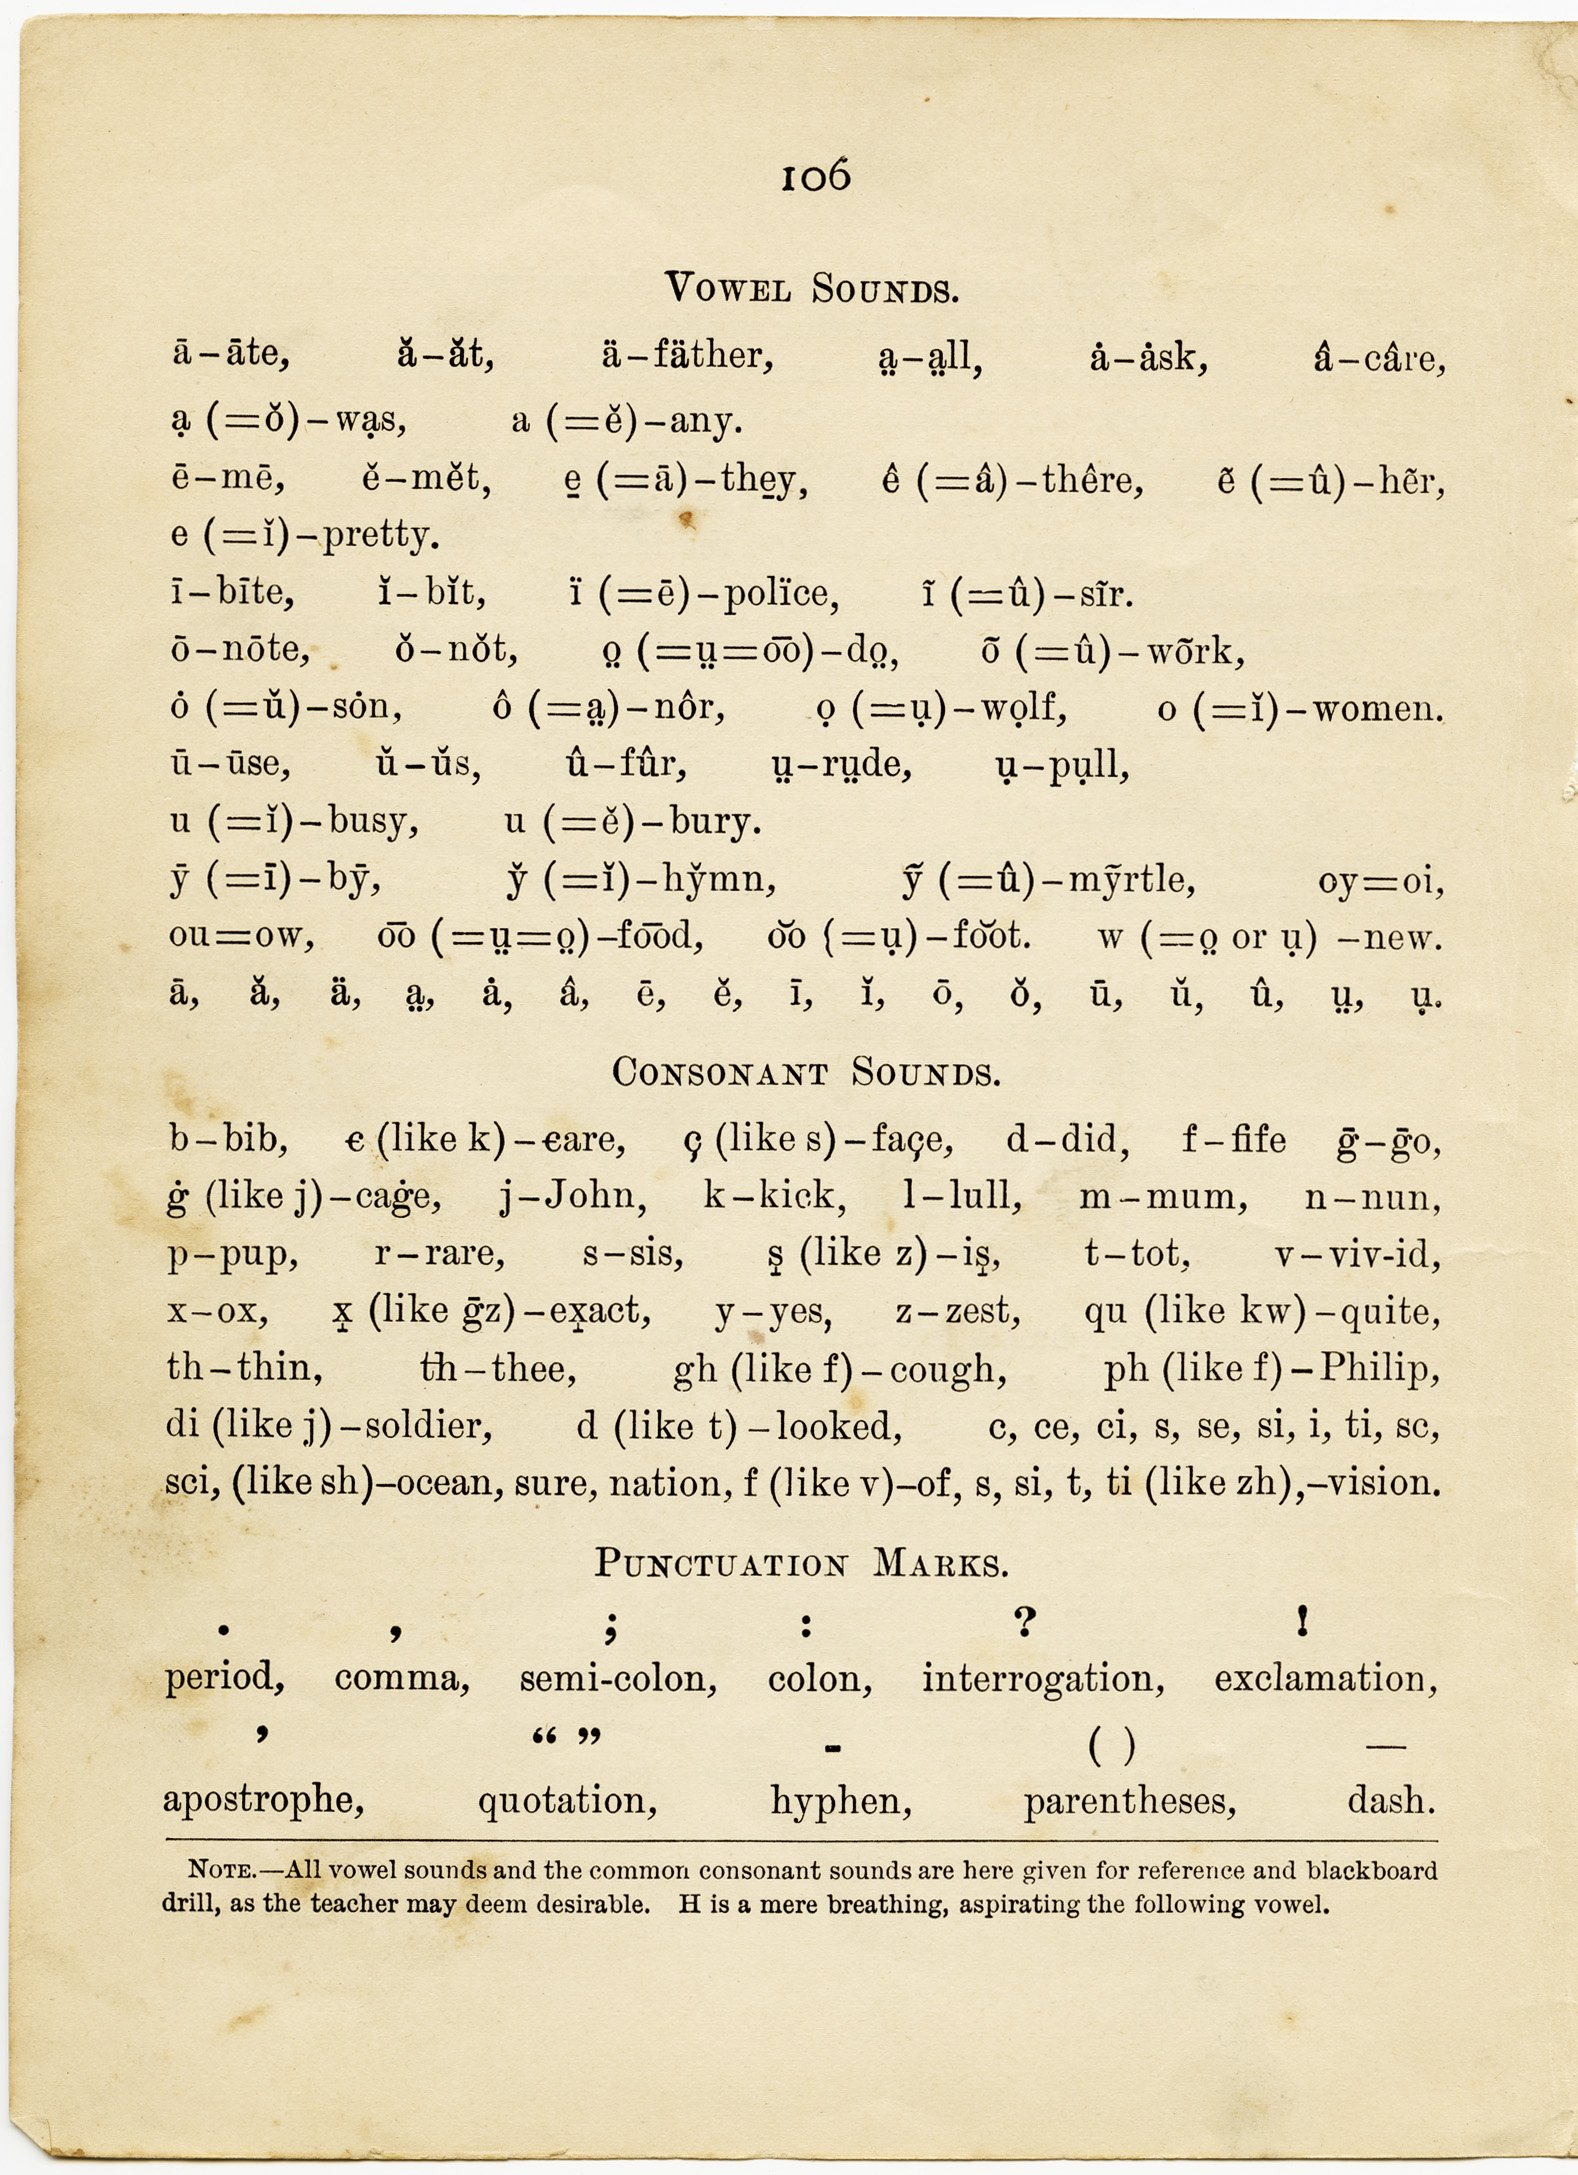 106
Vowel Sounds.
ā–āte, ă–ăt, ä–fäther, a̤–a̤ll, ȧ–ȧsk, â–câre,
ạ (=ŏ)–wạs, a (=ĕ)–any.
ē–mē, ĕ–mĕt, e̱ (=ā)–the̱y, ê (=â)–thêre, ẽ (=û)–hẽr,
e (=ĭ)–pretty.
ī–bīte, ĭ–bĭt, ï (=ē)–polïce, ĩ (=û)–sĩr.
ō–nōte, ŏ–nŏt, o̤ (=ṳ=o͞o)–do̤, õ (=û)–wõrk,
ȯ (=ŭ)–sȯn, ô (=a̤)–nôr, ọ (=ụ)–wọlf, o (=ĭ)–women.
ū–ūse, ŭ–ŭs, û–fûr, ṳ–rṳde, ụ–pụll,
u (=ĭ)–busy, u (=ĕ)–bury.
ȳ (=ī)–bȳ, y̆ (=ĭ)–hy̆mn, ỹ (=û)–mỹrtle, oy=oi,
ou=ow, o͞o (=ṳ=o̤)–fo͞od, o͝o (=ụ)–fo͝ot. w (=o̤ or ụ) –new.
ā, ă, ä, a̤, ȧ, â, ē, ĕ, ī, ĭ, ō, ŏ, ū, ŭ, û, ṳ, ụ.
Consonant Sounds.
b–bib, є (like k)–єare, ç (like s)–façe, d–did, f–fife ḡ–ḡo,
ġ (like j)–caġe, j–John, k–kick, l–lull, m–mum, n–nun,
p–pup, r–rare, s–sis, s̱ (like z)–is̱, t–tot, v–viv-id,
x–ox, x̱ (like ḡz)–ex̱act, y–yes, z–zest, qu (like kw)–quite,
th–thin, t̶h–thee, gh (like f)–cough, ph (like f)–Philip,
di (like j)–soldier, d (like t)–looked, c, ce, ci, s, se, si, i, ti, sc,
sci, (like sh)–ocean, sure, nation, f (like v)–of, s, si, t, ti (like zh),–vision.
Punctuation Marks.
. , ; : ? !
period, comma, semi-colon, colon, interrogation, exclamation,
’ “ ” - ( ) —
apostrophe, quotation, hyphen, parentheses, dash.
Note.—All vowel sounds and the common consonant sounds are here given for reference and blackboard
drill, as the teacher may deem desirable. H is a mere breathing, aspirating the following vowel.